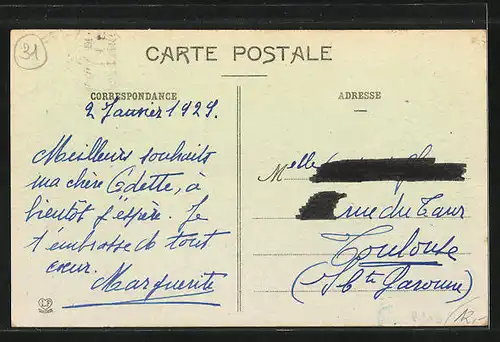 31
CARTE POSTALE
CORRESPONDANCE
ADRESSE
2 Janvier 1929.
Meilleurs souhaits
ma chère Odette, à
bientôt j'espère. Je
t'embrasse de tout
cœur.
Marguerite
Melle
rue du Taur
Toulouse
(Hte Garonne)